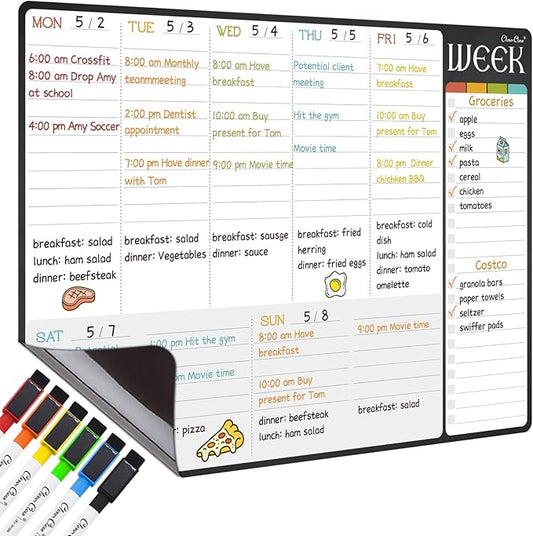 MON 5/2
6:00 am Crossfit
8:00 am Drop Amy
at school
4:00 pm Amy Soccer
breakfast: salad
lunch: ham salad
dinner: beefsteak
TUE 5/3
8:00 am Monthly
teammeeting
2:00 pm Dentist
appointment
7:00 pm Have dinner
with Tom
breakfast: salad
dinner: Vegetables
WED 5/4
8:00 am Have
breakfast
10:00 am Buy
present for Tom
9:00 pm Movie time
breakfast: sausge
dinner: sauce
THU 5/5
Potential client
meeting
Hit the gym
Movie time
breakfast: fried
herring
dinner: fried eggs
FRI 5/6
7:00 am Have
breakfast
10:00 am Buy
present for Tom
8:00 pm Dinner
chichken BBQ
breakfast: cold
dish
lunch: ham salad
dinner: tomato
omelette
SAT 5/7
:00 pm Hit the gym
pm Movie time
: pizza
SUN 5/8
8:00 am Have
breakfast
10:00 am Buy
present for Tom
dinner: beefsteak
lunch: ham salad
9:00 pm Movie time
breakfast: salad
WEEK
Groceries
apple
eggs
milk
pasta
cereal
chicken
tomatoes
Costco
granola bars
paper towels
seltzer
swiffer pads